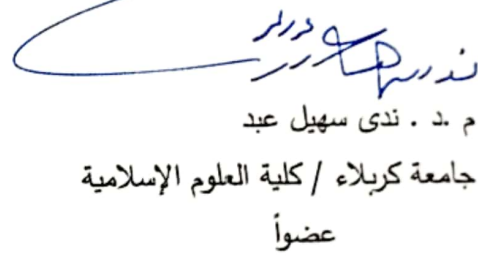 م .د . ندى سهيل عبد
جامعة كربلاء / كلية العلوم الإسلامية
عضواً